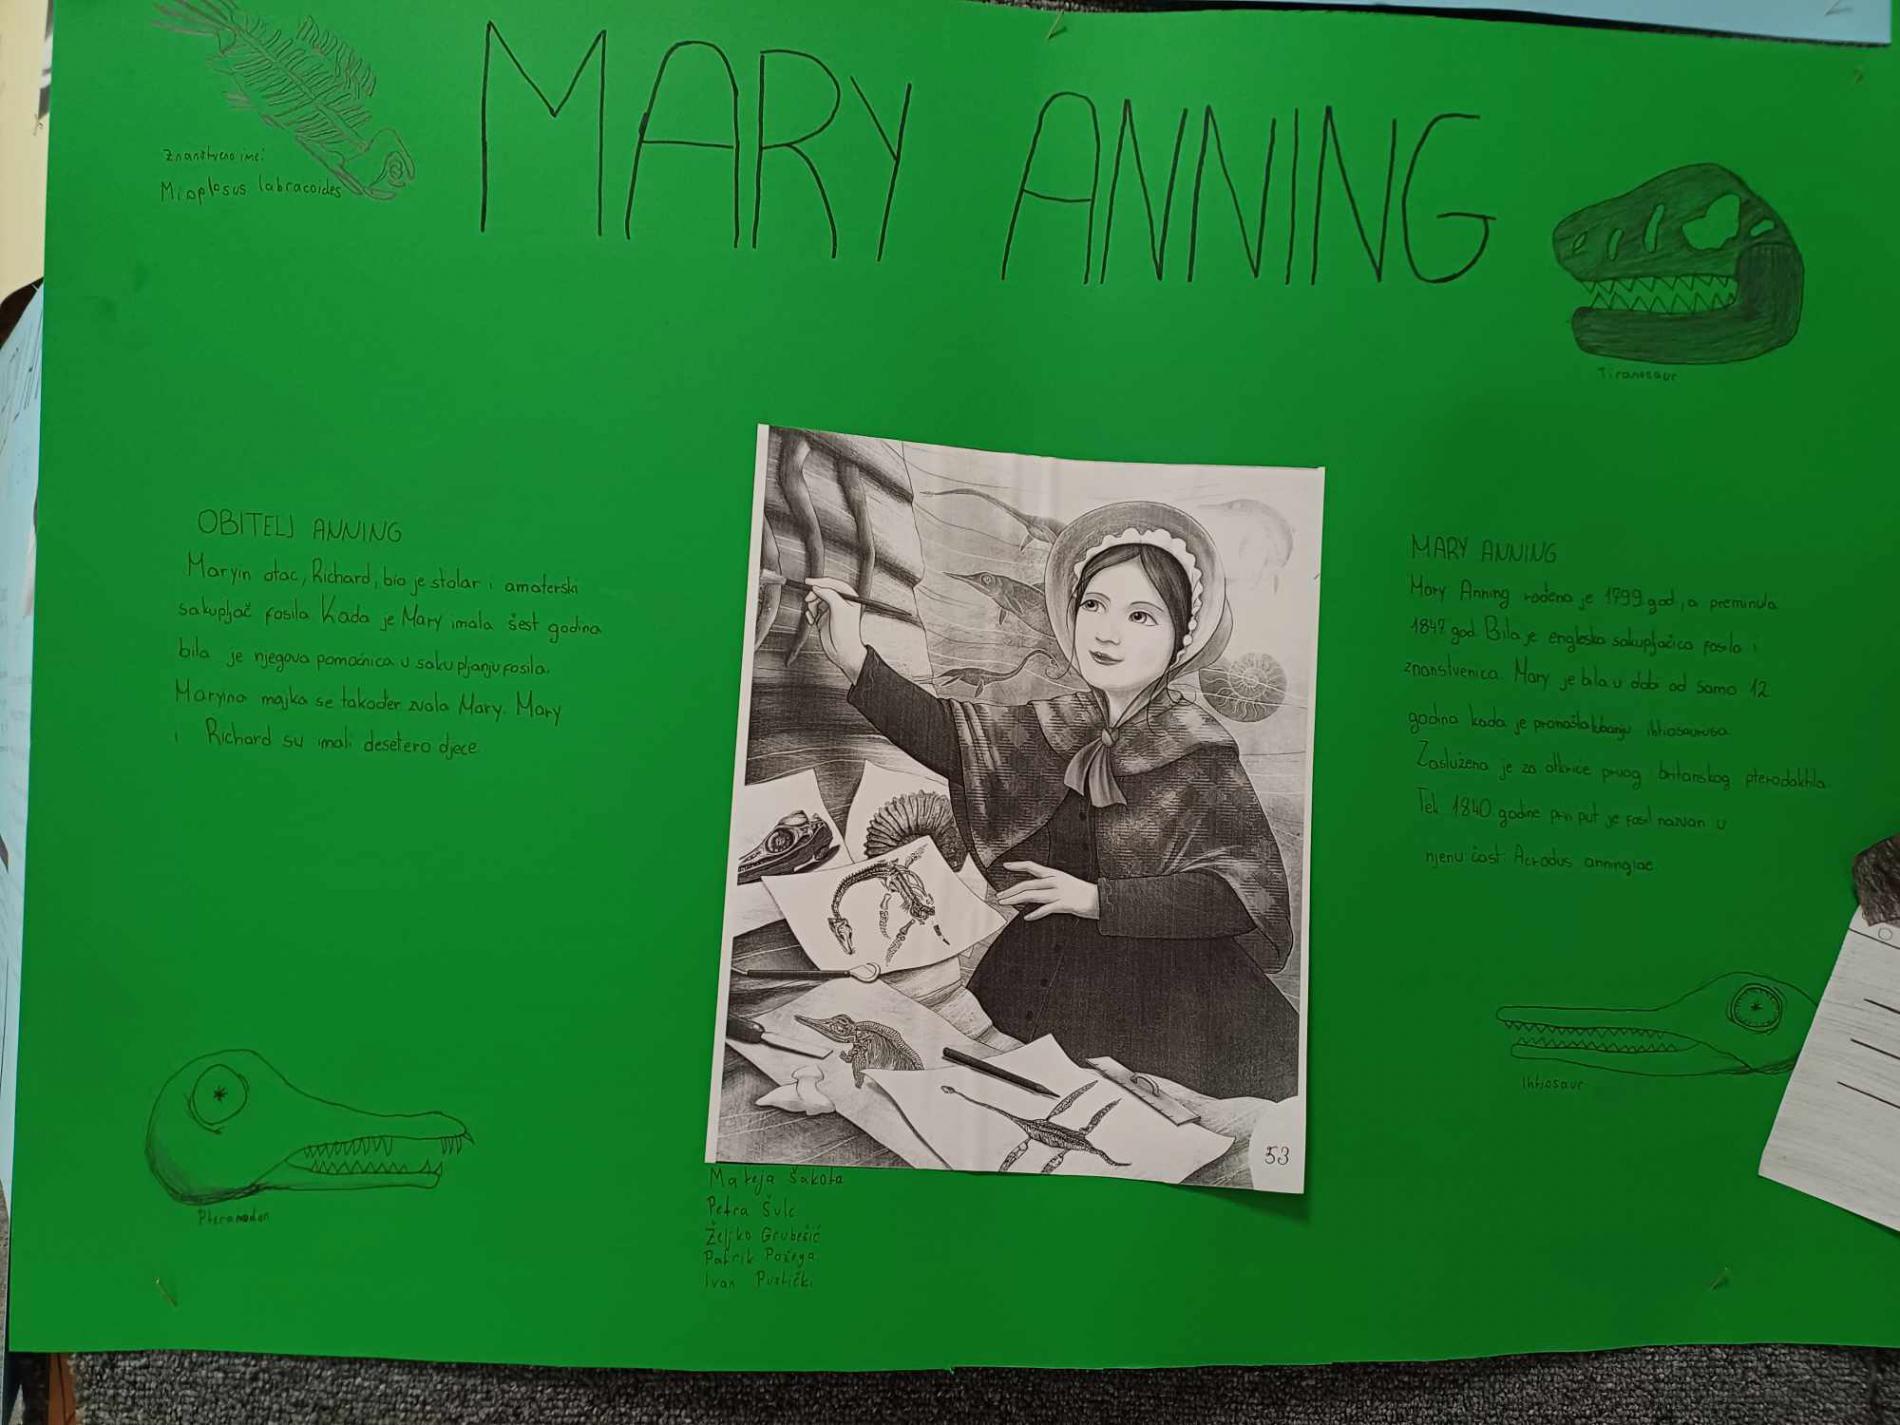 MARY ANNING
Znanstveno ime:
Mioplosus labracoides
Tiranosaur
OBITELJ ANNING
Maryin otac, Richard, bio je stolar i amaterski
sakupljač fosila Kada je Mary imala šest godina
bila je njegova pomoćnica u sakupljanju fosila.
Maryina majka se također zvala Mary. Mary
i Richard su imali desetero djece
MARY ANNING
Mary Anning rođena je 1799 god, a preminula
1847 god. Bila je engleska sakupljačica fosila i
znanstvenica. Mary je bila u dobi od samo 12
godina kada je pronašla lubanju ihtiosaurusa.
Zaslužena je za otkriće prvog britanskog pterodaktila.
Tek 1840. godine prvi put je fosil nazvan u
njenu čast: Acrodus anningiae
Ihtiosaur
Pteranodon
53
Mateja Šakota
Petra Šulc
Željko Grubešić
Patrik Požega
Ivan